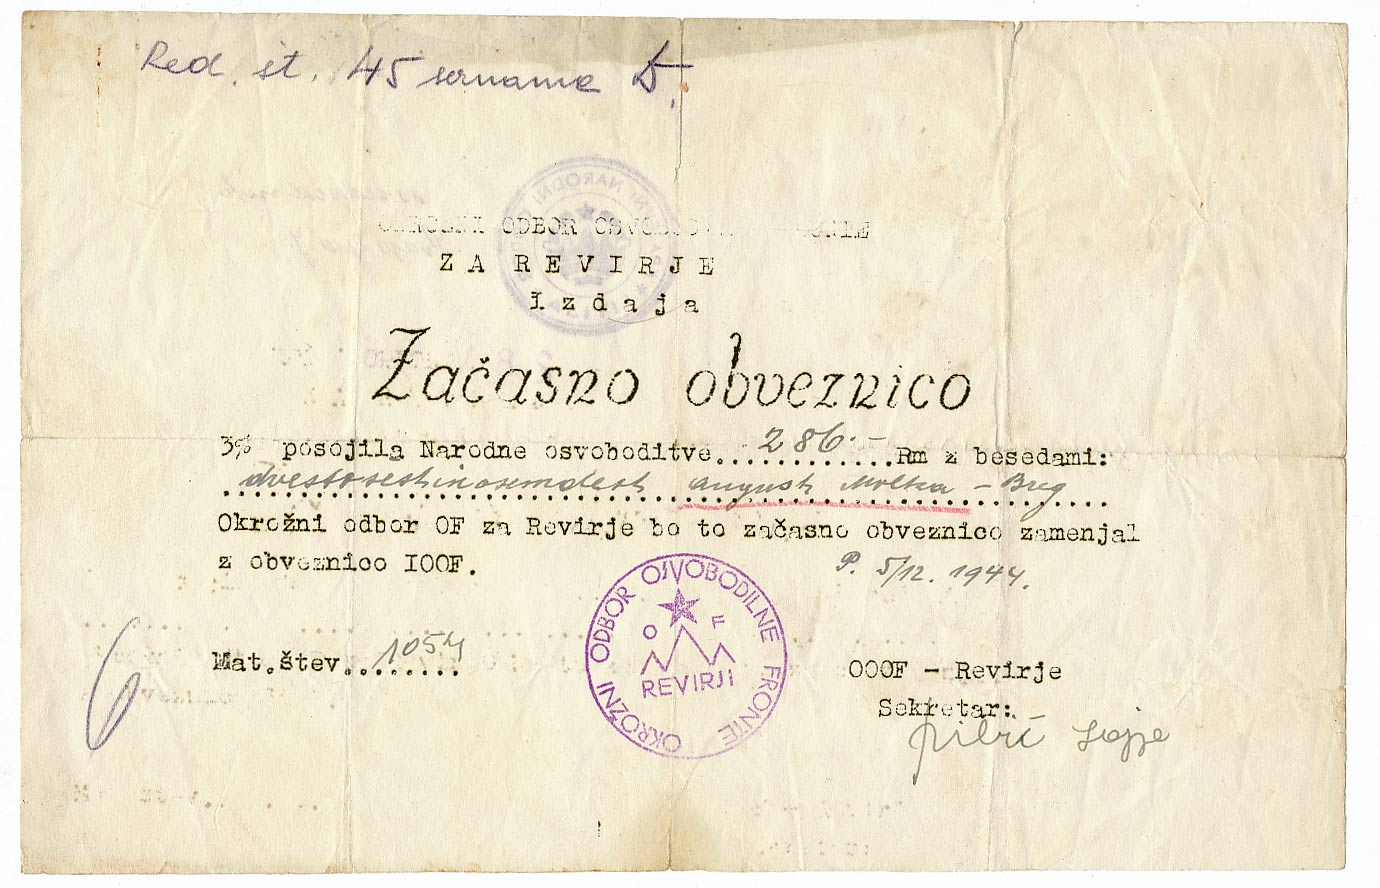 Red. št. 45 seznama D.
OKROŽNI ODBOR OSVOBODILNE FRONTE
ZA REVIRJE
izdaja
Začasno obveznico
3% posojila Narodne osvoboditve..286.-..Rm z besedami:
dvestošestinosemdeset August Molka - Breg
Okrožni odbor OF za Revirje bo to začasno obveznico zamenjal
z obveznico IOOF.
P. 5/12. 1944.
OKROŽNI ODBOR OSVOBODILNE FRONTE
O F
REVIRJI
Mat.štev.
OOOF - Revirje
Sekretar: